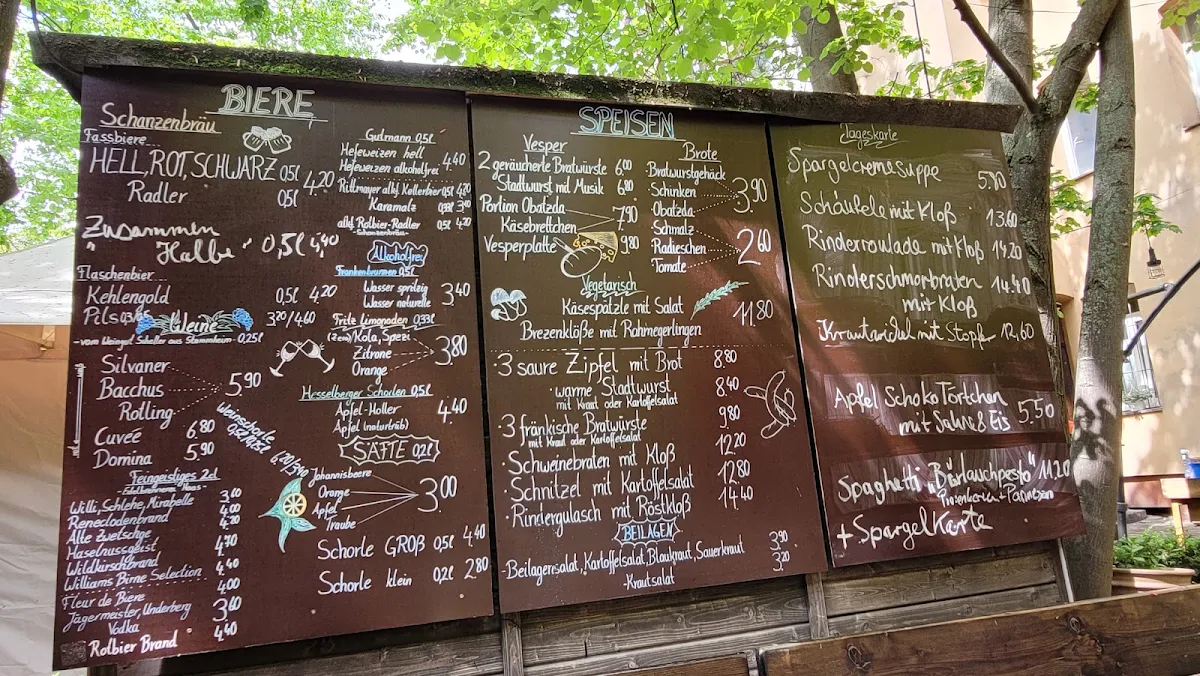 BIERE
Schanzenbräu
Fassbiere
HELL, ROT, SCHWARZ 0,5l 4,20
Radler 0,5l
Zusammen
" Halbe " 0,5l 4,40
Flaschenbier
Kehlengold 0,5l 4,20
Pils 3,20/4,60
Weine
-vom Weingut Scheller aus Stammheim- 0,25l
Silvaner
Bacchus 5,90
Rotling
Cuvée 6,80
Domina 5,90
Weinschorle
0,5l/0,25l 6,20/3,40
Feingeistiges 2cl
Willi, Schlehe, Mirabelle
Reneclodenbrand 4,00
Alte Zwetschge 4,20
Haselnussgeist 4,70
Wildkirschbrand 4,40
Williams Birne Selection
Fleur de Biere 4,00
Jägermeister, Underberg 3,60
Vodka
Rotbier Brand 4,40
Gutmann 0,5l
Hefeweizen hell
Hefeweizen alkoholfrei 4,40
Rittmayer alkf. Kellerbier 0,5l 4,20
Karamalz 0,33l
alkf. Rotbier-Radler 0,5l 4,20
-Schanzenbräu-
Alkoholfrei
Frankenbrunnen 0,5l
Wasser spritzig
Wasser naturelle 3,40
Fritz Limonaden 0,33l
Kola, Spezi
Zitrone 3,80
Orange
Hesselberger Schorlen 0,5l
Apfel-Holler 4,40
Apfel (naturtrüb)
SÄFTE 0,2l
Johannisbeere
Orange 3,00
Apfel
Traube
Schorle GROß 0,5l 4,40
Schorle klein 0,2l 2,80
SPEISEN
Vesper
2 geräucherte Bratwürste 6,00
Stadtwurst mit Musik 6,80
Portion Obatzda
Käsebrettchen 7,90
Vesperplatte 9,80
Brote
Bratwurstgehäck
Schinken 3,90
Obatzda
Schmalz
Radieschen 2,60
Tomate
Vegetarisch
Käsespätzle mit Salat
Brezenklöße mit Rahmegerlingen 11,80
·3 saure Zipfel mit Brot 8,80
· warme Stadtwurst 8,40
mit Kraut oder Kartoffelsalat
·3 fränkische Bratwürste 9,80
mit Kraut oder Kartoffelsalat
·Schweinebraten mit Kloß 12,20
·Schnitzel mit Kartoffelsalat 12,80
·Rindergulasch mit Röstkloß 14,40
BEILAGEN
·Beilagensalat, Kartoffelsalat, Blaukraut, Sauerkraut 3,90
·Krautsalat 3,20
Tageskarte
Spargelcremesuppe 5,80
Schäufele mit Kloß 13,60
Rinderroulade mit Kloß 14,20
Rinderschmorbraten 14,40
mit Kloß
Krautwickel mit Stopfer 12,60
Apfel Schoko Törtchen
mit Sahne & Eis 5,50
Spaghetti "Bärlauchpesto" 11,20
Pinienkerne + Parmesan
+ Spargel Karte